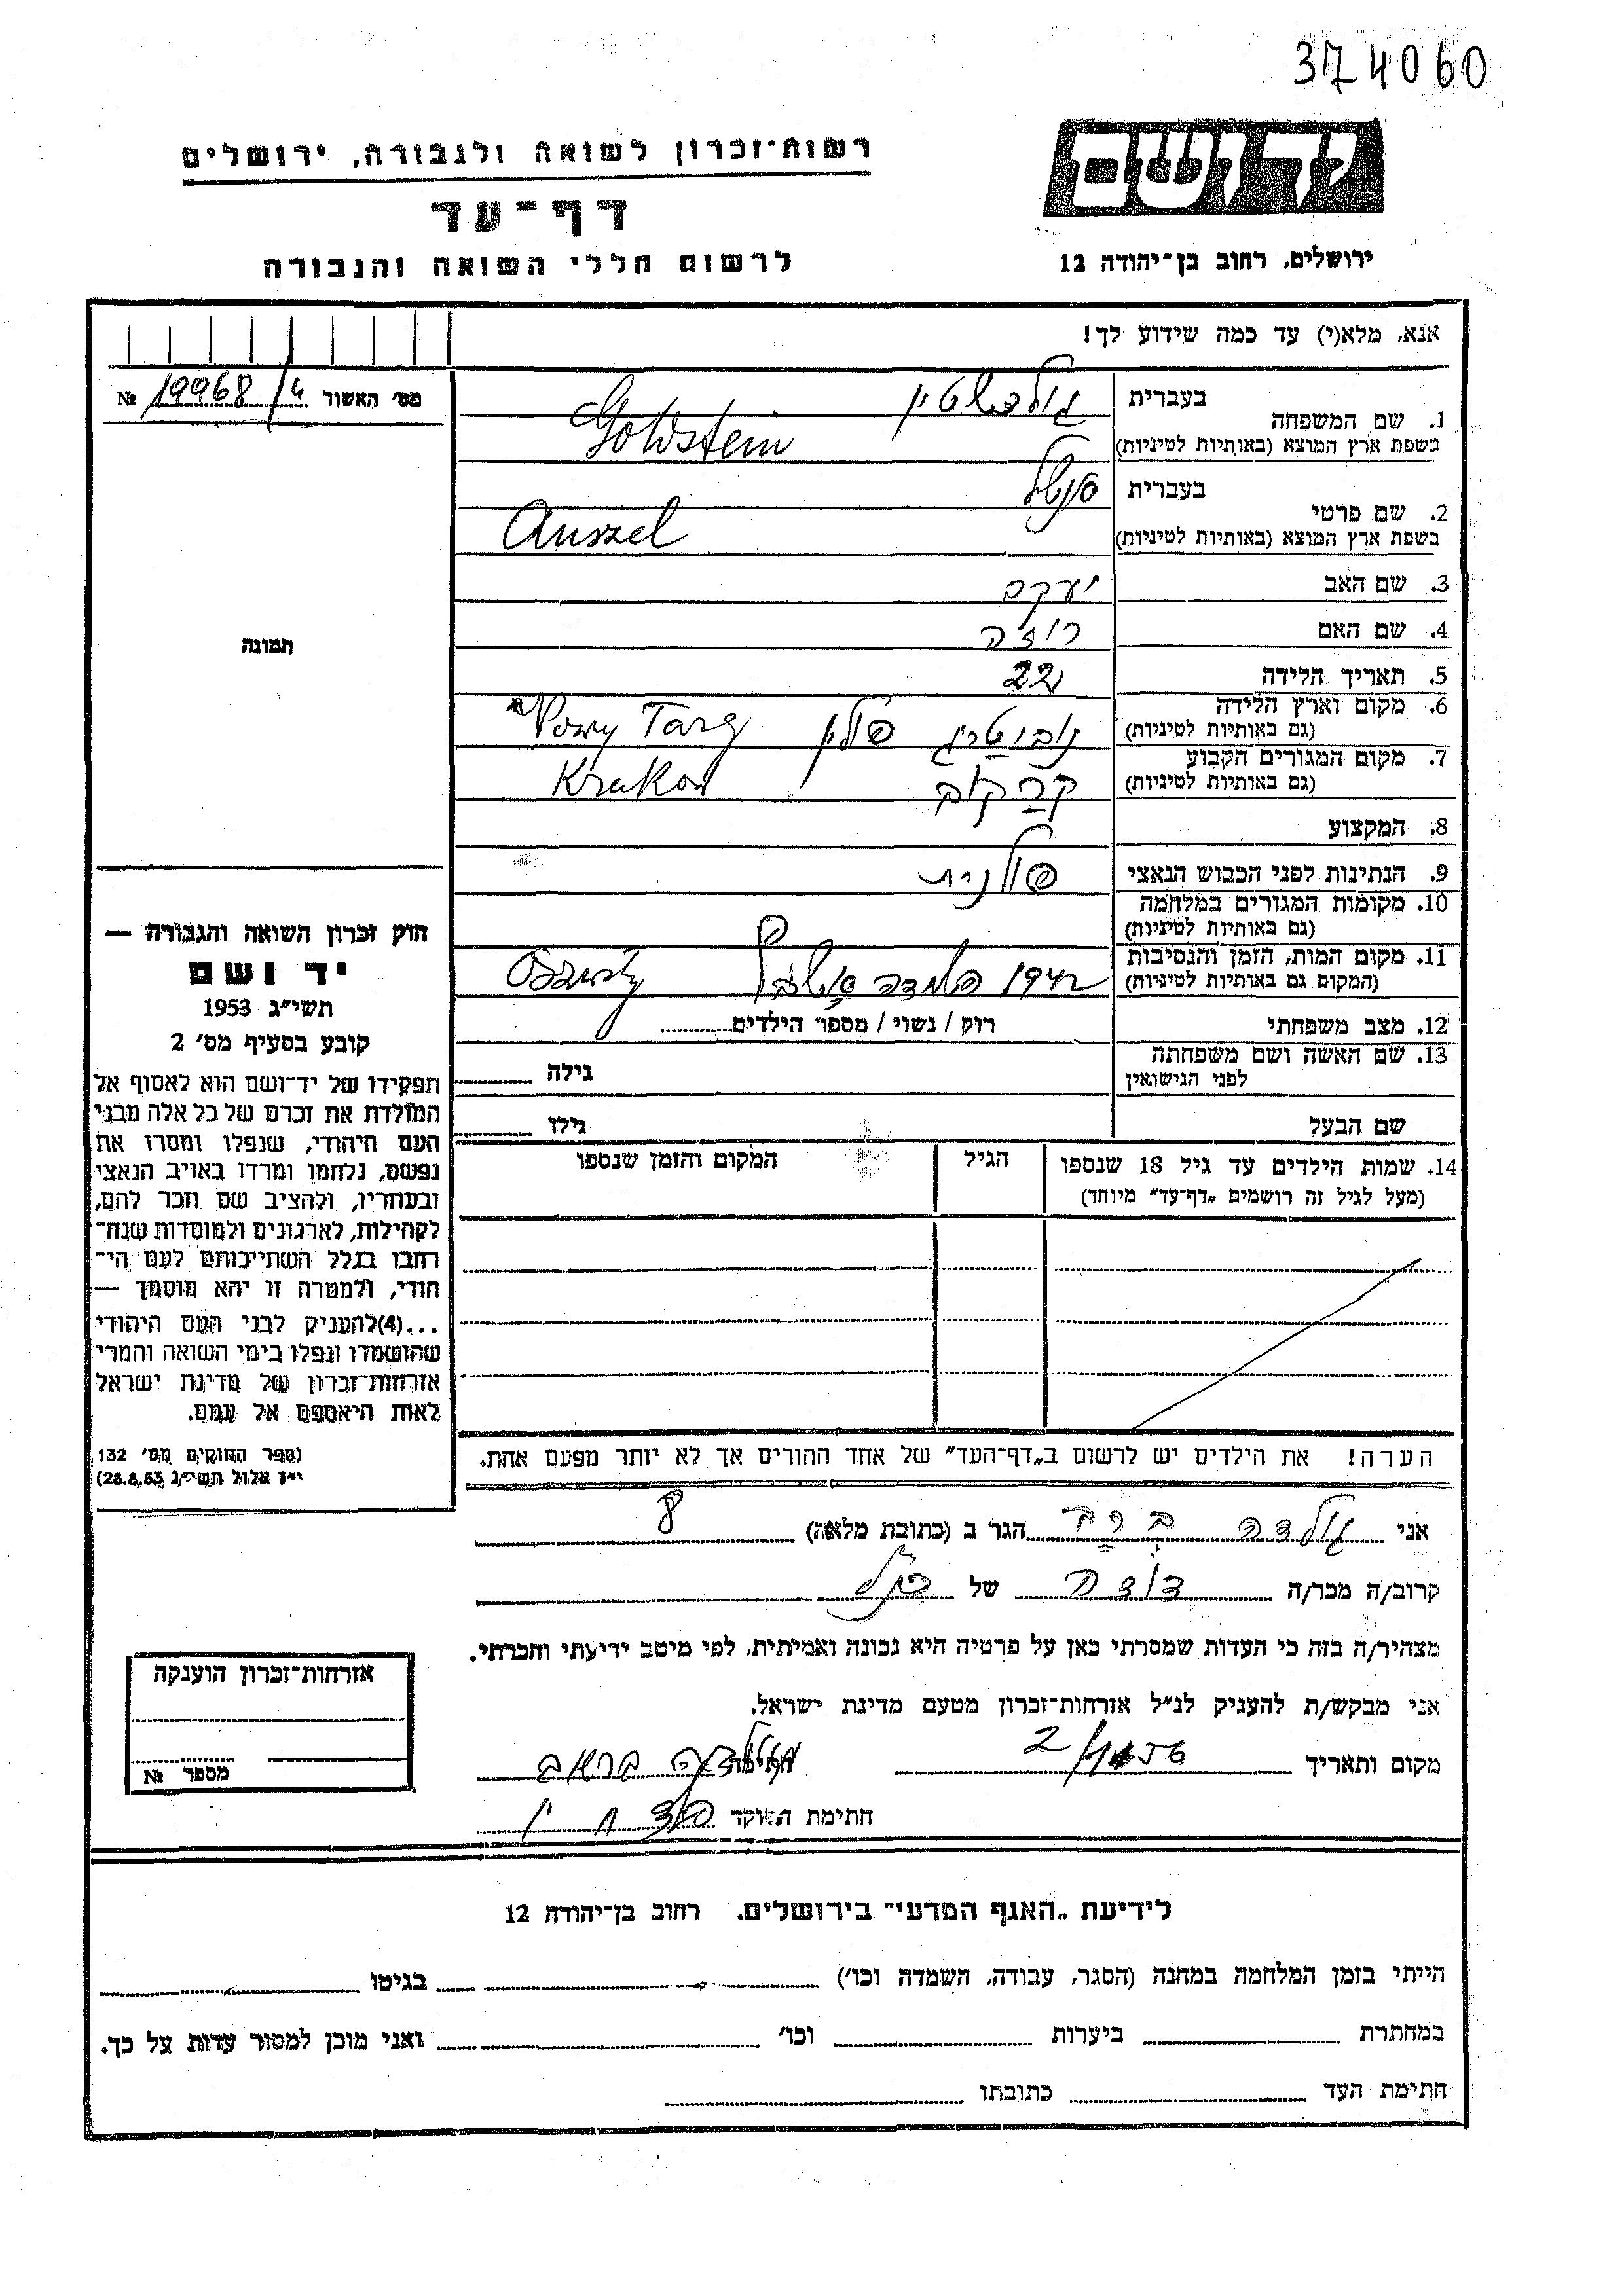 374060
יד ושם
רשות־זכרון לשואה ולגבורה, ירושלים
דף־עד
ירושלים, רחוב בן־יהודה 12
לרשום חללי השואה והגבורה
אנא, מלא(י) עד כמה שידוע לך!
מס' האשור 19968/4 №
1. שם המשפחה
בעברית גולדשטין
בשפת ארץ המוצא (באותיות לטיניות) Goldstein
2. שם פרטי
בעברית
בשפת ארץ המוצא (באותיות לטיניות) Anszel
3. שם האב יעקב
4. שם האם רוזה
5. תאריך הלידה 22
6. מקום וארץ הלידה
(גם באותיות לטיניות) נובי טרג פולין Nowy Targ
7. מקום המגורים הקבוע
(גם באותיות לטיניות) קרקוב Krakow
8. המקצוע
9. הנתינות לפני הכבוש הנאצי פולנית
10. מקומות המגורים במלחמה
(גם באותיות לטיניות)
11. מקום המות, הזמן והנסיבות
(המקום גם באותיות לטיניות) 1942
12. מצב משפחתי רוק / נשוי / מספר הילדים
13. שם האשה ושם משפחתה
לפני הנישואין גילה
שם הבעל גילו
14. שמות הילדים עד גיל 18 שנספו
(מעל לגיל זה רושמים „דף־עד" מיוחד)
הגיל
המקום והזמן שנספו
הערה! את הילדים יש לרשום ב„דף־העד" של אחד ההורים אך לא יותר מפעם אחת.
תמונה
חוק זכרון השואה והגבורה —
יד ושם
תשי"ג 1953
קובע בסעיף מס' 2
תפקידו של יד־ושם הוא לאסוף אל
המולדת את זכרם של כל אלה מבני
העם היהודי, שנפלו ומסרו את
נפשם, נלחמו ומרדו באויב הנאצי
ובעוזריו, ולהציב שם וזכר להם,
לקהילות, לארגונים ולמוסדות שנח־
רבו בגלל השתייכותם לעם הי־
הודי, ולמטרה זו יהא מוסמך —
...(4)להעניק לבני העם היהודי
שהושמדו ונפלו בימי השואה והמרי
אזרחות־זכרון של מדינת ישראל
לאות היאספם אל עמם.
(ספר החוקים מס' 132
י"ז אלול תשי"ג 28.8.53)
אני גולדה הגר ב (כתובת מלאה)
קרוב/ה מכר/ה דודה של
מצהיר/ה בזה כי העדות שמסרתי כאן על פרטיה היא נכונה ואמיתית, לפי מיטב ידיעתי והכרתי.
אני מבקש/ת להעניק לנ"ל אזרחות־זכרון מטעם מדינת ישראל.
מקום ותאריך חתימה
חתימת הפוקד
אזרחות־זכרון הוענקה
מספר №
לידיעת „האגף המדעי" בירושלים. רחוב בן־יהודה 12
הייתי בזמן המלחמה במחנה (הסגר, עבודה, השמדה וכו') בגיטו
במחתרת ביערות וכו' ואני מוכן למסור עדות על כך.
חתימת העד כתובתו